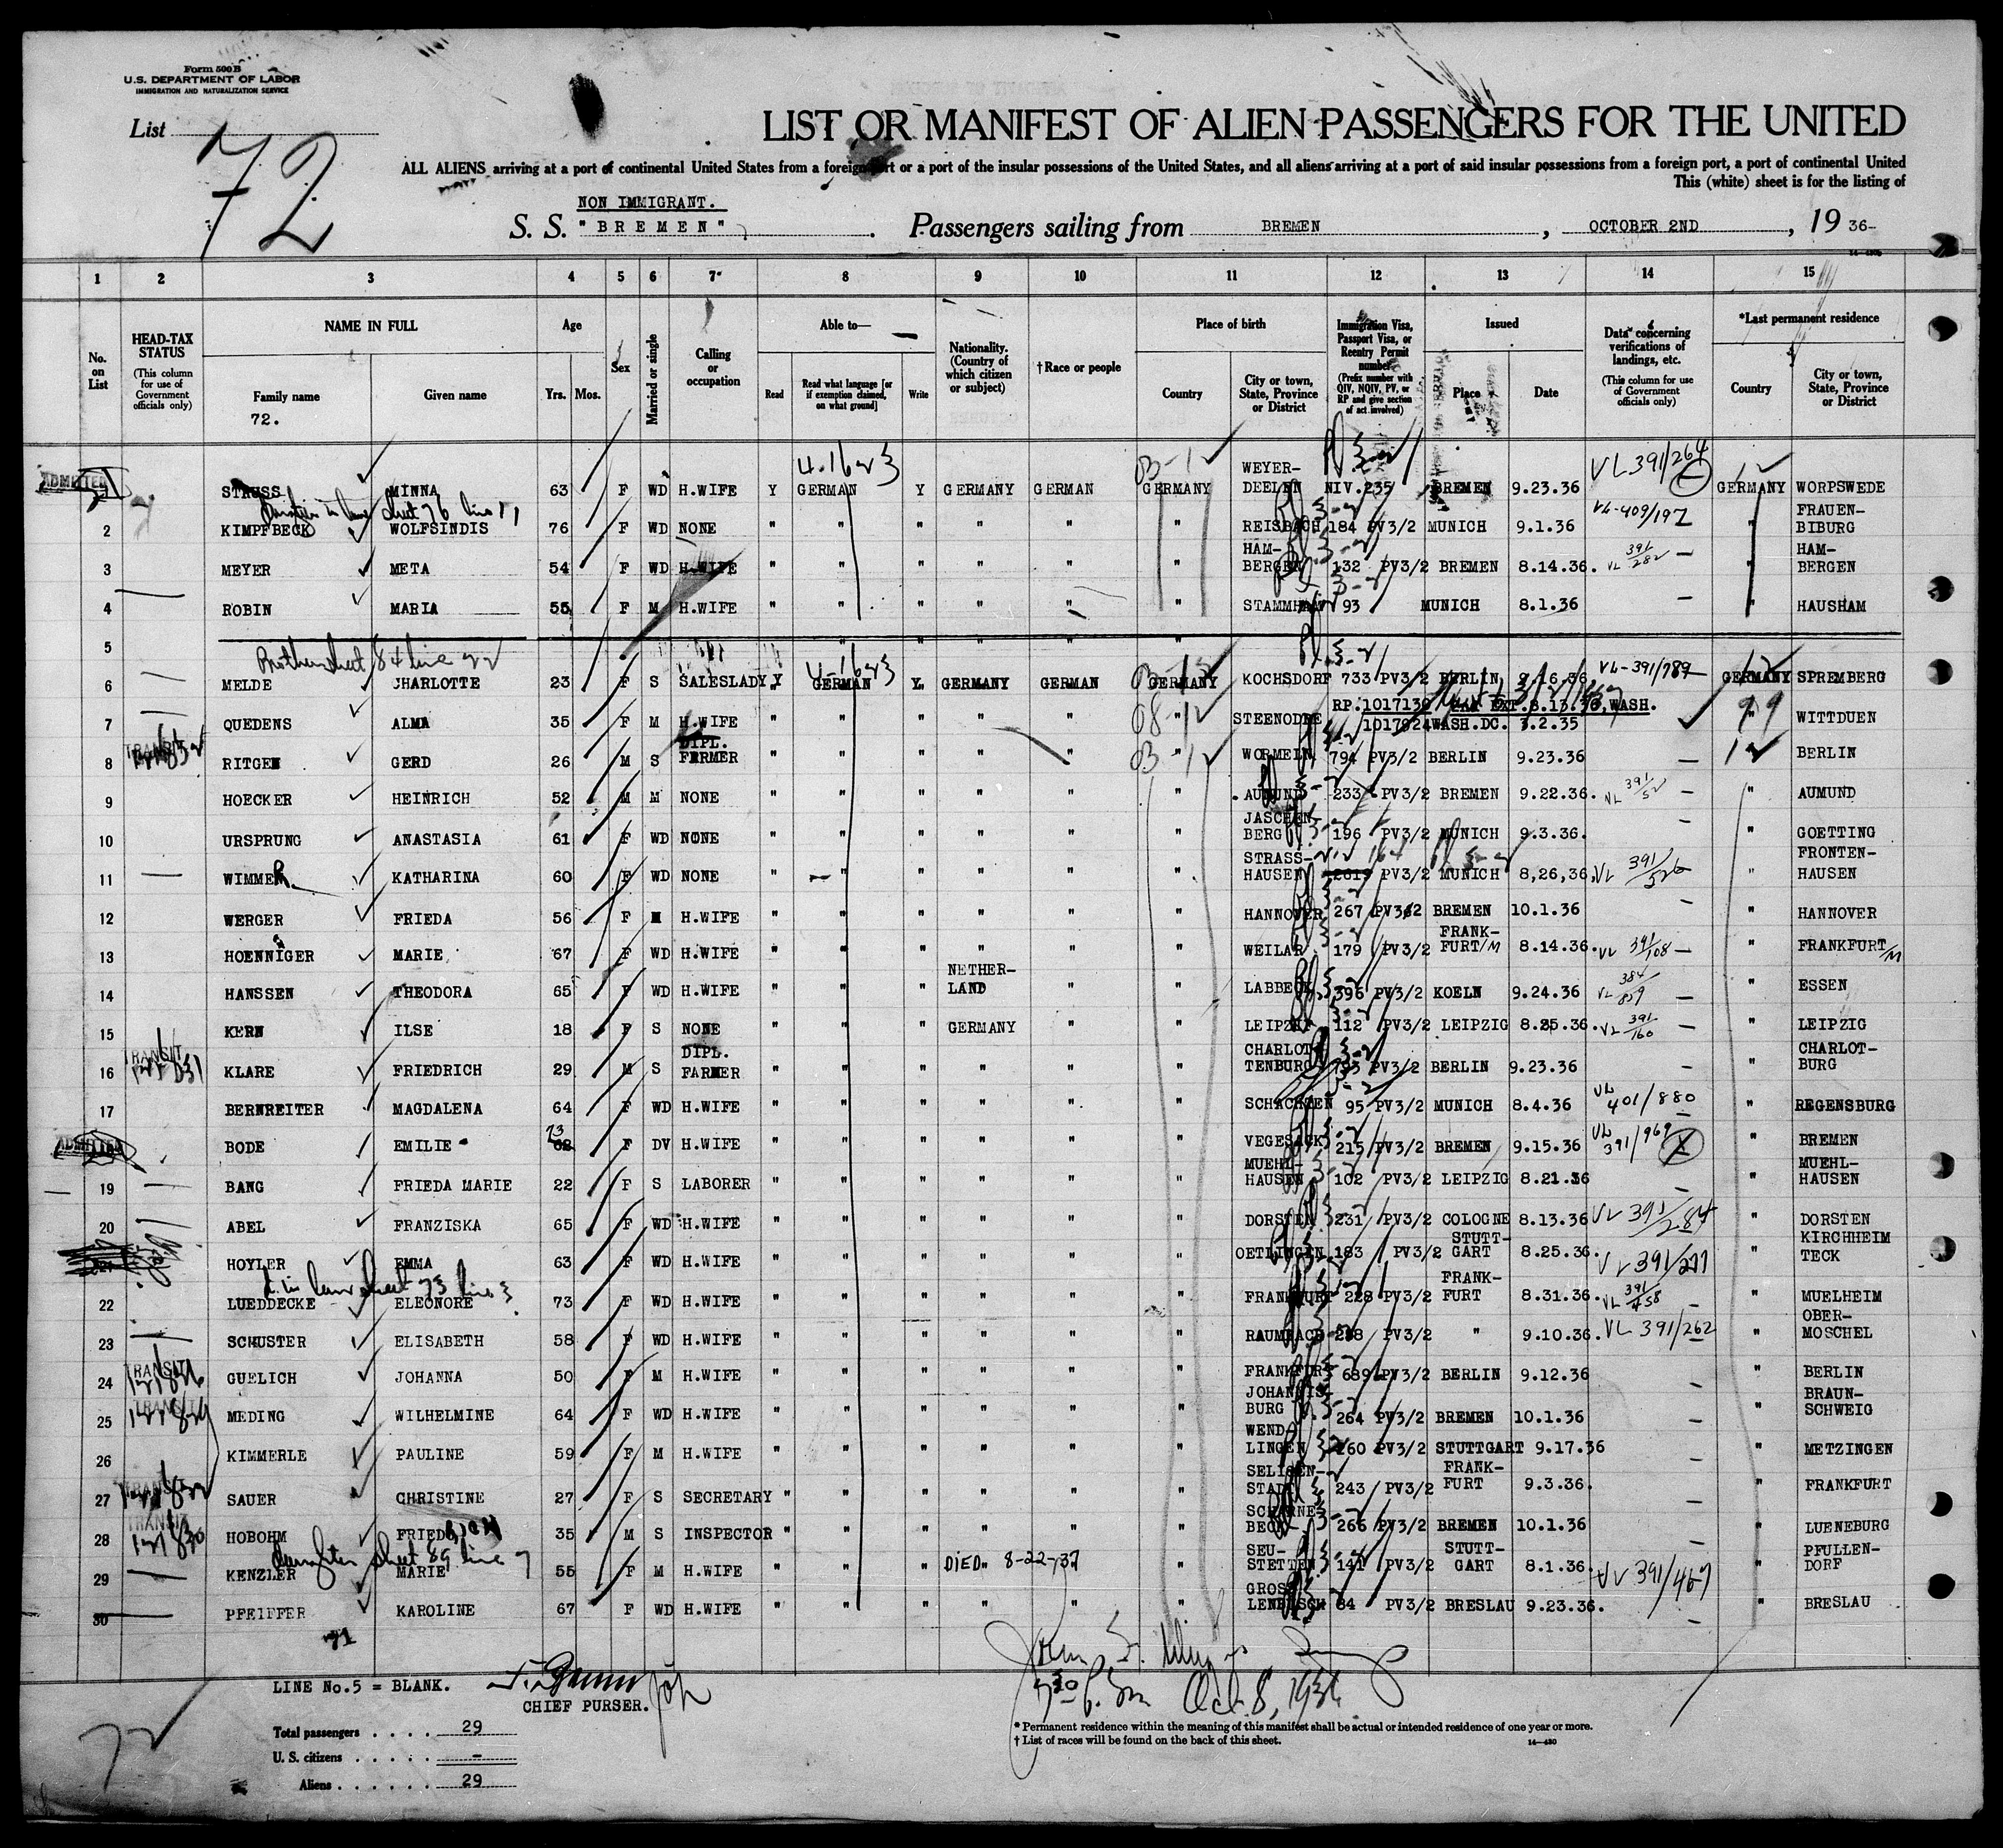 Form 500 B
U.S. DEPARTMENT OF LABOR
IMMIGRATION AND NATURALIZATION SERVICE
List
72
LIST OR MANIFEST OF ALIEN PASSENGERS FOR THE UNITED
ALL ALIENS arriving at a port of continental United States from a foreign port or a port of the insular possessions of the United States, and all aliens arriving at a port of said insular possessions from a foreign port, a port of continental United
This (white) sheet is for the listing of
NON IMMIGRANT.
S. S. "BREMEN" Passengers sailing from BREMEN, OCTOBER 2ND, 19 36-
1 2 3 4 5 6 7 8 9 10 11 12 13 14 15
No. on List
HEAD-TAX STATUS (This column for use of Government officials only)
NAME IN FULL
Family name
72.
Given name
Age
Yrs. Mos.
Sex
Married or single
Calling or occupation
Able to—
Read
Read what language [or if exemption claimed, on what ground]
Write
Nationality. (Country of which citizen or subject)
†Race or people
Place of birth
Country
City or town, State, Province or District
Immigration Visa, Passport Visa, or Reentry Permit number (Prefix number with QIV, NQIV, PV, or RP and give section of act involved)
Issued
Place
Date
Data concerning verifications of landings, etc. (This column for use of Government officials only)
*Last permanent residence
Country
City or town, State, Province or District
ADMITTED STRUSS MINNA 63 F WD H.WIFE Y GERMAN Y GERMANY GERMAN GERMANY WEYER-DEELEN NIV.235 BREMEN 9.23.36 VL 391/264 GERMANY WORPSWEDE
sheet 76 line 11
2 KIMPFBECK WOLFSINDIS 76 F WD NONE " " " " " " REISBACH 184 PV3/2 MUNICH 9.1.36 VL-409/197 " FRAUEN-BIBURG
3 MEYER META 54 F WD H.WIFE " " " " " " HAM-BERGEN 132 PV3/2 BREMEN 8.14.36. VL 391/282 " HAM-BERGEN
4 ROBIN MARIA 55 F M H.WIFE " " " " " " STAMMHAM 93 MUNICH 8.1.36 " HAUSHAM
5 " " "
Brother sheet 84 line 22
6 MELDE CHARLOTTE 23 F S SALESLADY Y GERMAN Y GERMANY GERMAN GERMANY KOCHSDORF 733 PV3/2 BERLIN 9.16.36 VL-391/789 GERMANY SPREMBERG
7 QUEDENS ALMA 35 F M H.WIFE " " " " " " STEENODDE RP.1017139 EXT.8.13.36,WASH. 1017924 WASH.DC. 3.2.35 WITTDUEN
8 TRANSIT RITGEN GERD 26 M S DIPL. FARMER " " " " " " WORMELN 794 PV3/2 BERLIN 9.23.36 BERLIN
9 HOECKER HEINRICH 52 M M NONE " " " " " " AUMUND 233 PV3/2 BREMEN 9.22.36. VL 391/52 " AUMUND
10 URSPRUNG ANASTASIA 61 F WD NONE " " " " " " JASCHEN-BERG 196 PV3/2 MUNICH 9.3.36. " GOETTING
11 WIMMER KATHARINA 60 F WD NONE " " " " " " STRASS-HAUSEN PV3/2 MUNICH 8,26,36, VL 391/526 " FRONTEN-HAUSEN
12 WERGER FRIEDA 56 F M H.WIFE " " " " " " HANNOVER 267 PV3/2 BREMEN 10.1.36 " HANNOVER
13 HOENNIGER MARIE 67 F WD H.WIFE " " " " " " WEILAR 179 PV3/2 FRANK-FURT/M 8.14.36. VL 391/108 " FRANKFURT/M
14 HANSSEN THEODORA 65 F WD H.WIFE " " " NETHER-LAND " " LABBECK 396 PV3/2 KOELN 9.24.36 VL 384/859 " ESSEN
15 KERN ILSE 18 F S NONE " " " GERMANY " " LEIPZIG 112 PV3/2 LEIPZIG 8.25.36. VL 391/160 " LEIPZIG
16 TRANSIT KLARE FRIEDRICH 29 M S DIPL. FARMER " " " " " " CHARLOT-TENBURG 793 PV3/2 BERLIN 9.23.36 " CHARLOT-BURG
17 BERNREITER MAGDALENA 64 F WD H.WIFE " " " " " " SCHACHTEN 95 PV3/2 MUNICH 8.4.36 VL 401/880 " REGENSBURG
ADMITTED BODE EMILIE 73 F DV H.WIFE " " " " " " VEGESACK 215 PV3/2 BREMEN 9.15.36 VL 391/969 " BREMEN
19 BANG FRIEDA MARIE 22 F S LABORER " " " " " " MUEHL-HAUSEN 102 PV3/2 LEIPZIG 8.21.36 " MUEHL-HAUSEN
20 ABEL FRANZISKA 65 F WD H.WIFE " " " " " " DORSTEN 231 PV3/2 COLOGNE 8.13.36 VL 391/284 " DORSTEN
21 HOYLER EMMA 63 F WD H.WIFE " " " " " " OETLINGEN 183 PV3/2 STUTT-GART 8.25.36. VL 391/277 " KIRCHHEIM TECK
in law sheet 73 line 3
22 LUEDDECKE ELEONORE 73 F WD H.WIFE " " " " " " FRANKFURT 228 PV3/2 FRANK-FURT 8.31.36. VL 391/458 " MUELHEIM
23 SCHUSTER ELISABETH 58 F WD H.WIFE " " " " " " RAUMBACH 238 PV3/2 " 9.10.36. VL 391/262 " OBER-MOSCHEL
24 TRANSIT GUELICH JOHANNA 50 F M H.WIFE " " " " " " FRANKFURT 689 PV3/2 BERLIN 9.12.36 " BERLIN
25 TRANSIT MEDING WILHELMINE 64 F WD H.WIFE " " " " " " JOHANNIS-BURG 264 PV3/2 BREMEN 10.1.36 " BRAUN-SCHWEIG
26 KIMMERLE PAULINE 59 F M H.WIFE " " " " " " WEND-LINGEN 260 PV3/2 STUTTGART 9.17.36 " METZINGEN
27 TRANSIT SAUER CHRISTINE 27 F S SECRETARY " " " " " " SELIGEN-STADT 243 PV3/2 FRANK-FURT 9.3.36. " FRANKFURT
28 TRANSIT HOBOHM 35 M S INSPECTOR " " " " " " SCHARNE-BECK 266 PV3/2 BREMEN 10.1.36 " LUENEBURG
daughter sheet 89 line 7
29 KENZLER MARIE 55 F M H.WIFE " " " DIED 8-22-37 " SEU-STETTEN 141 PV3/2 STUTT-GART 8.1.36. VL 391/467 " PFULLEN-DORF
30 PFEIFFER KAROLINE 67 F WD H.WIFE " " " " " " GROSS LENBUSCH 84 PV3/2 BRESLAU 9.23.36. " BRESLAU
71
LINE No.5 = BLANK.
CHIEF PURSER.
Oct. 8, 1936
72
Total passengers .... 29
U. S. citizens .... -
Aliens ...... 29
* Permanent residence within the meaning of this manifest shall be actual or intended residence of one year or more.
† List of races will be found on the back of this sheet.
14—430